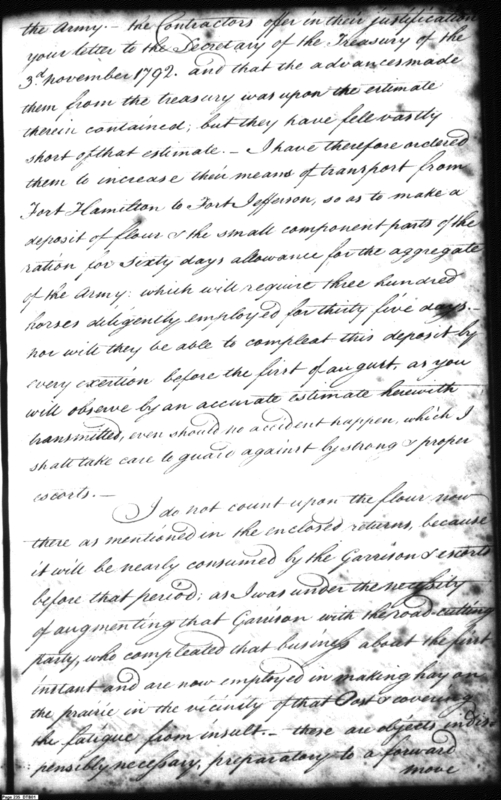 the Army. – the Contractors offer in their justification
your letter to the Secretary of the Treasury of the
3d. november 1792. and that the advances made
them from the treasury was upon the estimate
therein contained; but they have fell vastly
short of that estimate. – I have therefore ordered
them to increase their means of transport from
Fort Hamilton to Fort Jefferson, so as to make a
deposit of flour & the small component parts of the
ration for sixty days allowance for the aggregate
of the Army: which will require three hundred
horses diligently employed for thirty five days. –
nor will they be able to compleat this deposit by
every exertion before the first of august, as you
will observe by an accurate estimate herewith
transmitted, even should no accident happen, which I
shall take care to guard against by strong & proper
escorts. –
I do not count upon the flour now
there as mentioned in the enclosed returns, because
it will be nearly consumed by the Garrison & escorts
before that period; as I was under the necessity
of augmenting that Garrison with the road cutting
party, who compleated that business about the first
instant and are now employed in making hay on
the prairie in the vicinity of that Post & covering
the fatigue from insult. – these are objects indis
pensibly necessary, preparatory to a forward
move